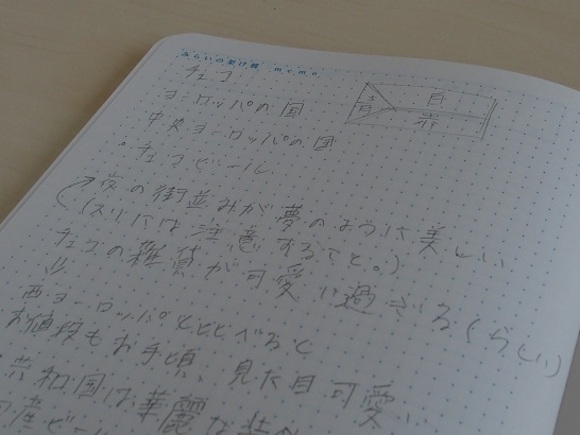 みらいの架け橋 memo
チェコ
ヨーロッパの国
中央ヨーロッパの国
・チェコビール
青 白 赤
夜の街並みが夢のように美しい
(スリには注意すること。)
チェコの雑貨が可愛い過ぎる(らしい)
西ヨーロッパとくらべると
お値段もお手頃、見た目可愛い
共和国は華麗な装
産ビール